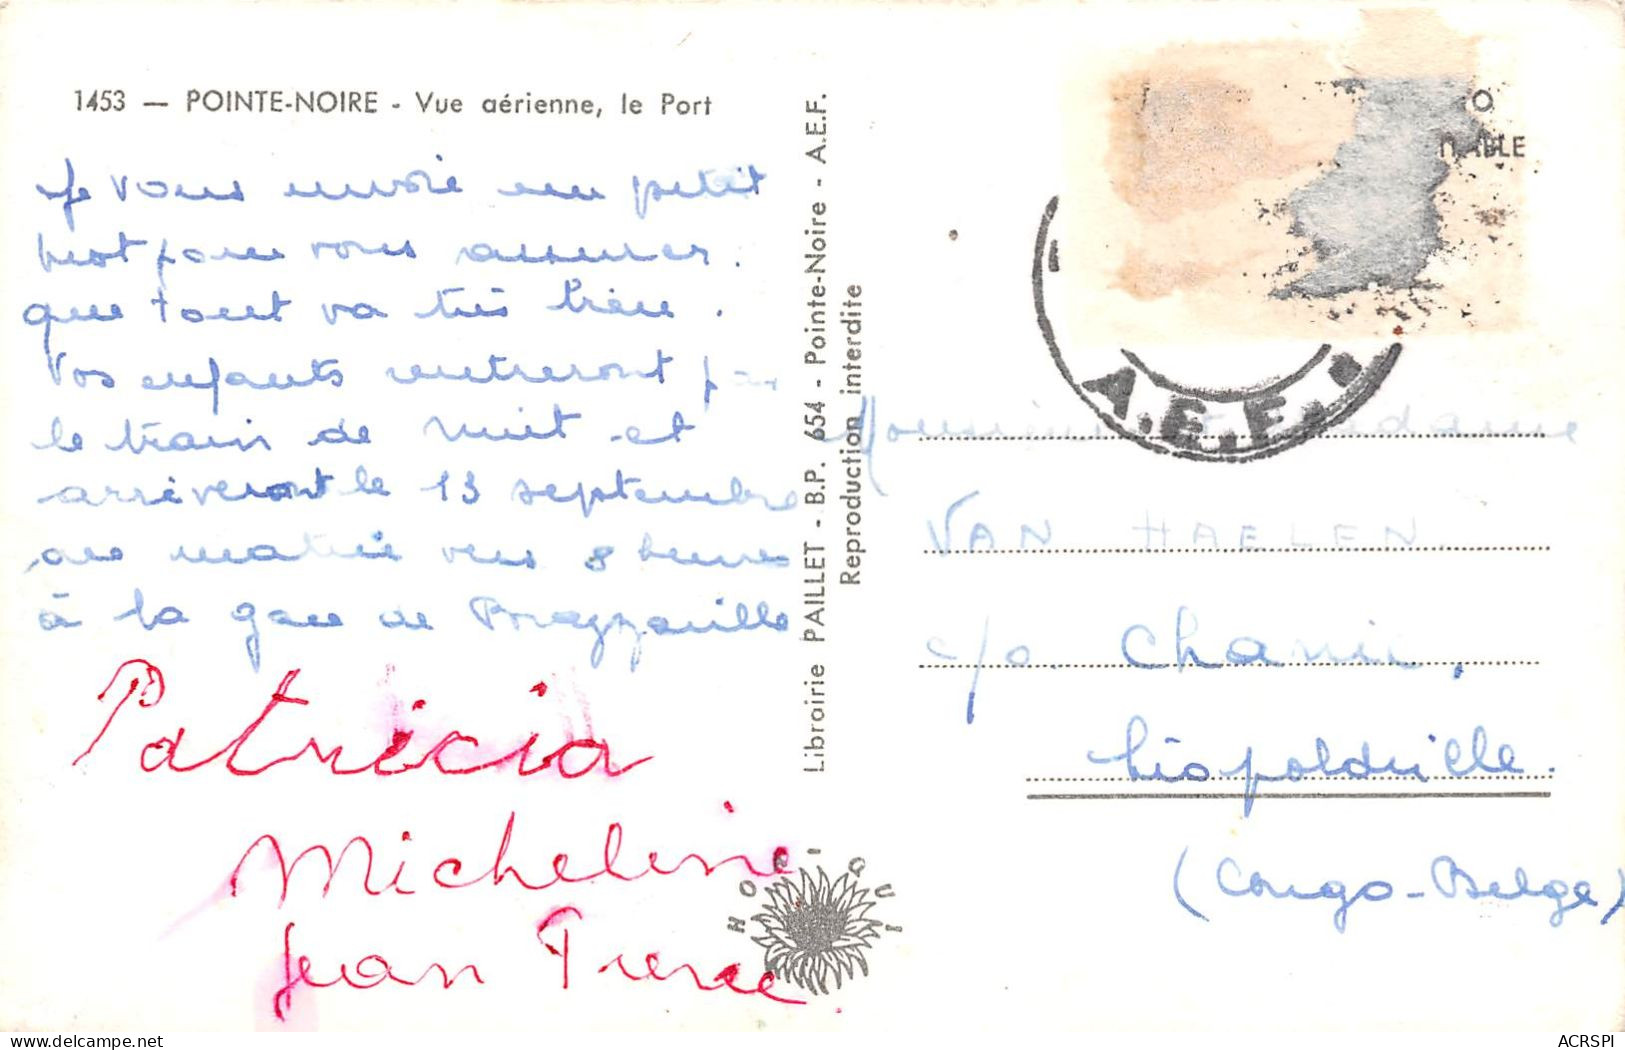 1453 — POINTE-NOIRE - Vue aérienne, le Port
Je vous envoie un petit
mot pour vous assurer.
que tout va très bien.
Vos enfants rentreront par
le train de nuit et
arriveront le 13 septembre
au matin vers 8 heures
à la gare de Brazzaville
Patricia
Micheline
Jean Pierre
Librairie PAILLET - B.P. 654 - Pointe-Noire - A.E.F.
Reproduction interdite
HORIAUI
A.E.F.
Monsieur et Madame
VAN HAELEN.
c/o. Chanic,
Léopoldville.
(Congo-Belge)
delcampe.net
ACRSPI